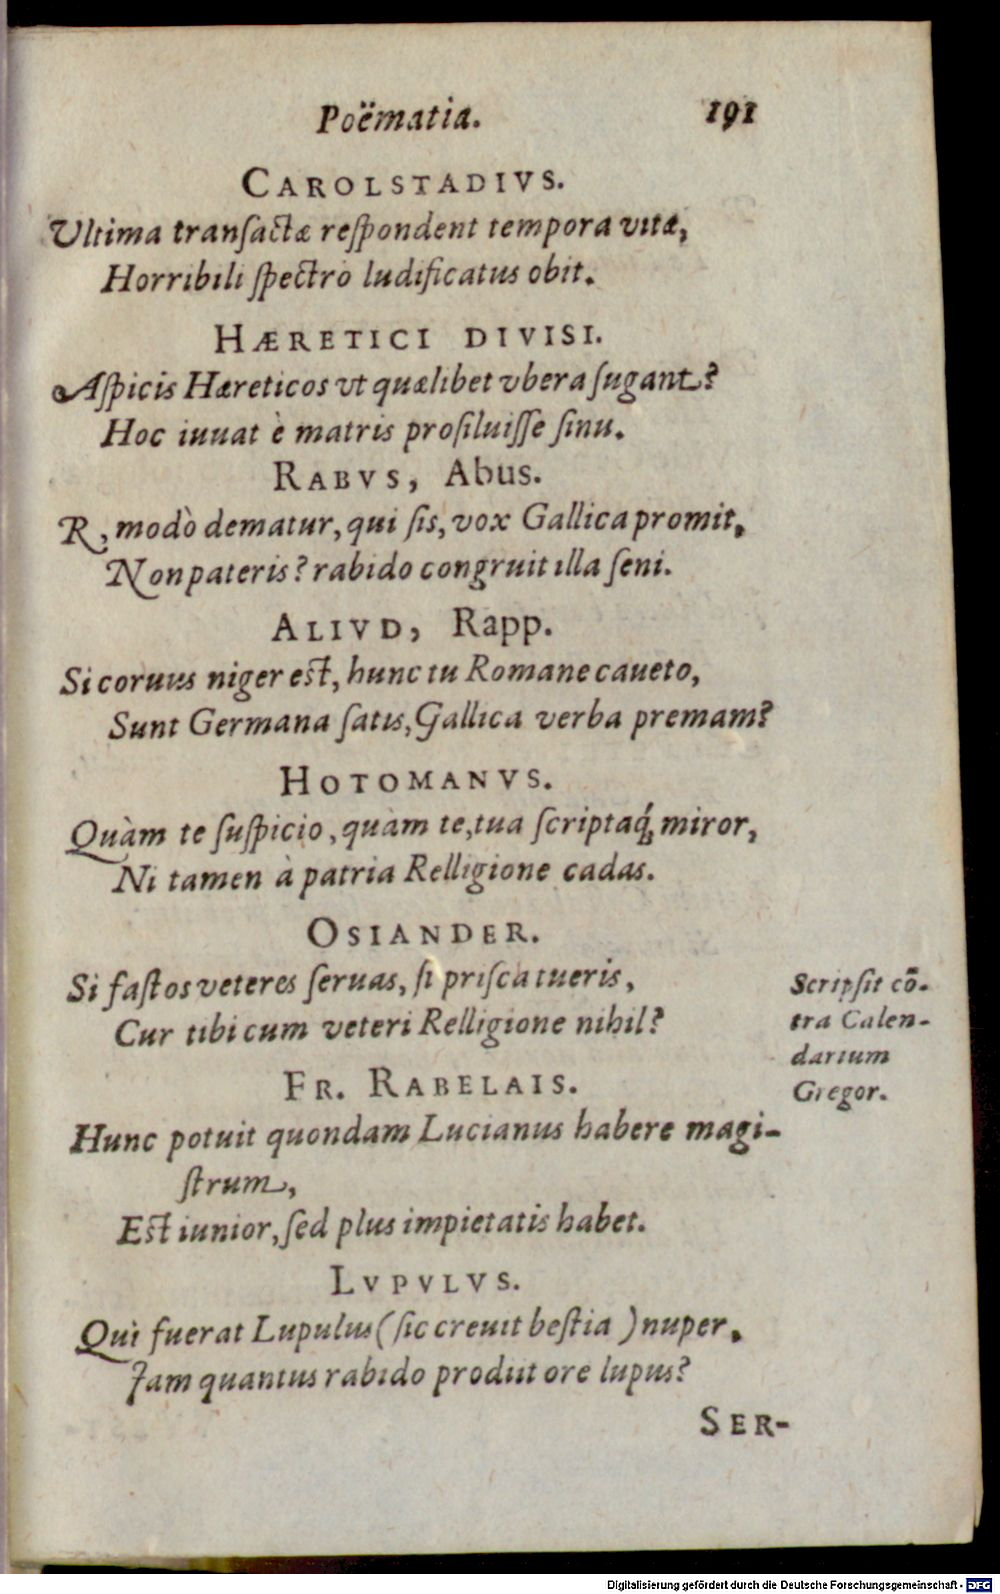 Poëmatia. 191
CAROLSTADIVS.
Ultima transactæ respondent tempora vitæ,
Horribili spectro ludificatus obit.
HÆRETICI DIVISI.
Aspicis Hæreticos vt quælibet vbera sugant?
Hoc iuuat è matris prosiluisse sinu.
RABVS, Abus.
R, modò dematur, qui sis, vox Gallica promit,
Non pateris? rabido congruit illa seni.
ALIVD, Rapp.
Si coruus niger est, hunc tu Romane caueto,
Sunt Germana satis, Gallica verba premam?
HOTOMANVS.
Quàm te suspicio, quàm te, tua scriptaq́; miror,
Ni tamen à patria Relligione cadas.
OSIANDER.
Si fastos veteres seruas, si prisca tueris,
Cur tibi cum veteri Relligione nihil?
Scripsit cō-
tra Calen-
darium
Gregor.
FR. RABELAIS.
Hunc potuit quondam Lucianus habere magi-
strum,
Est iunior, sed plus impietatis habet.
LVPVLVS.
Qui fuerat Lupulus (sic creuit bestia) nuper,
Jam quantus rabido prodiit ore lupus?
SER-
Digitalisierung gefördert durch die Deutsche Forschungsgemeinschaft - DFG